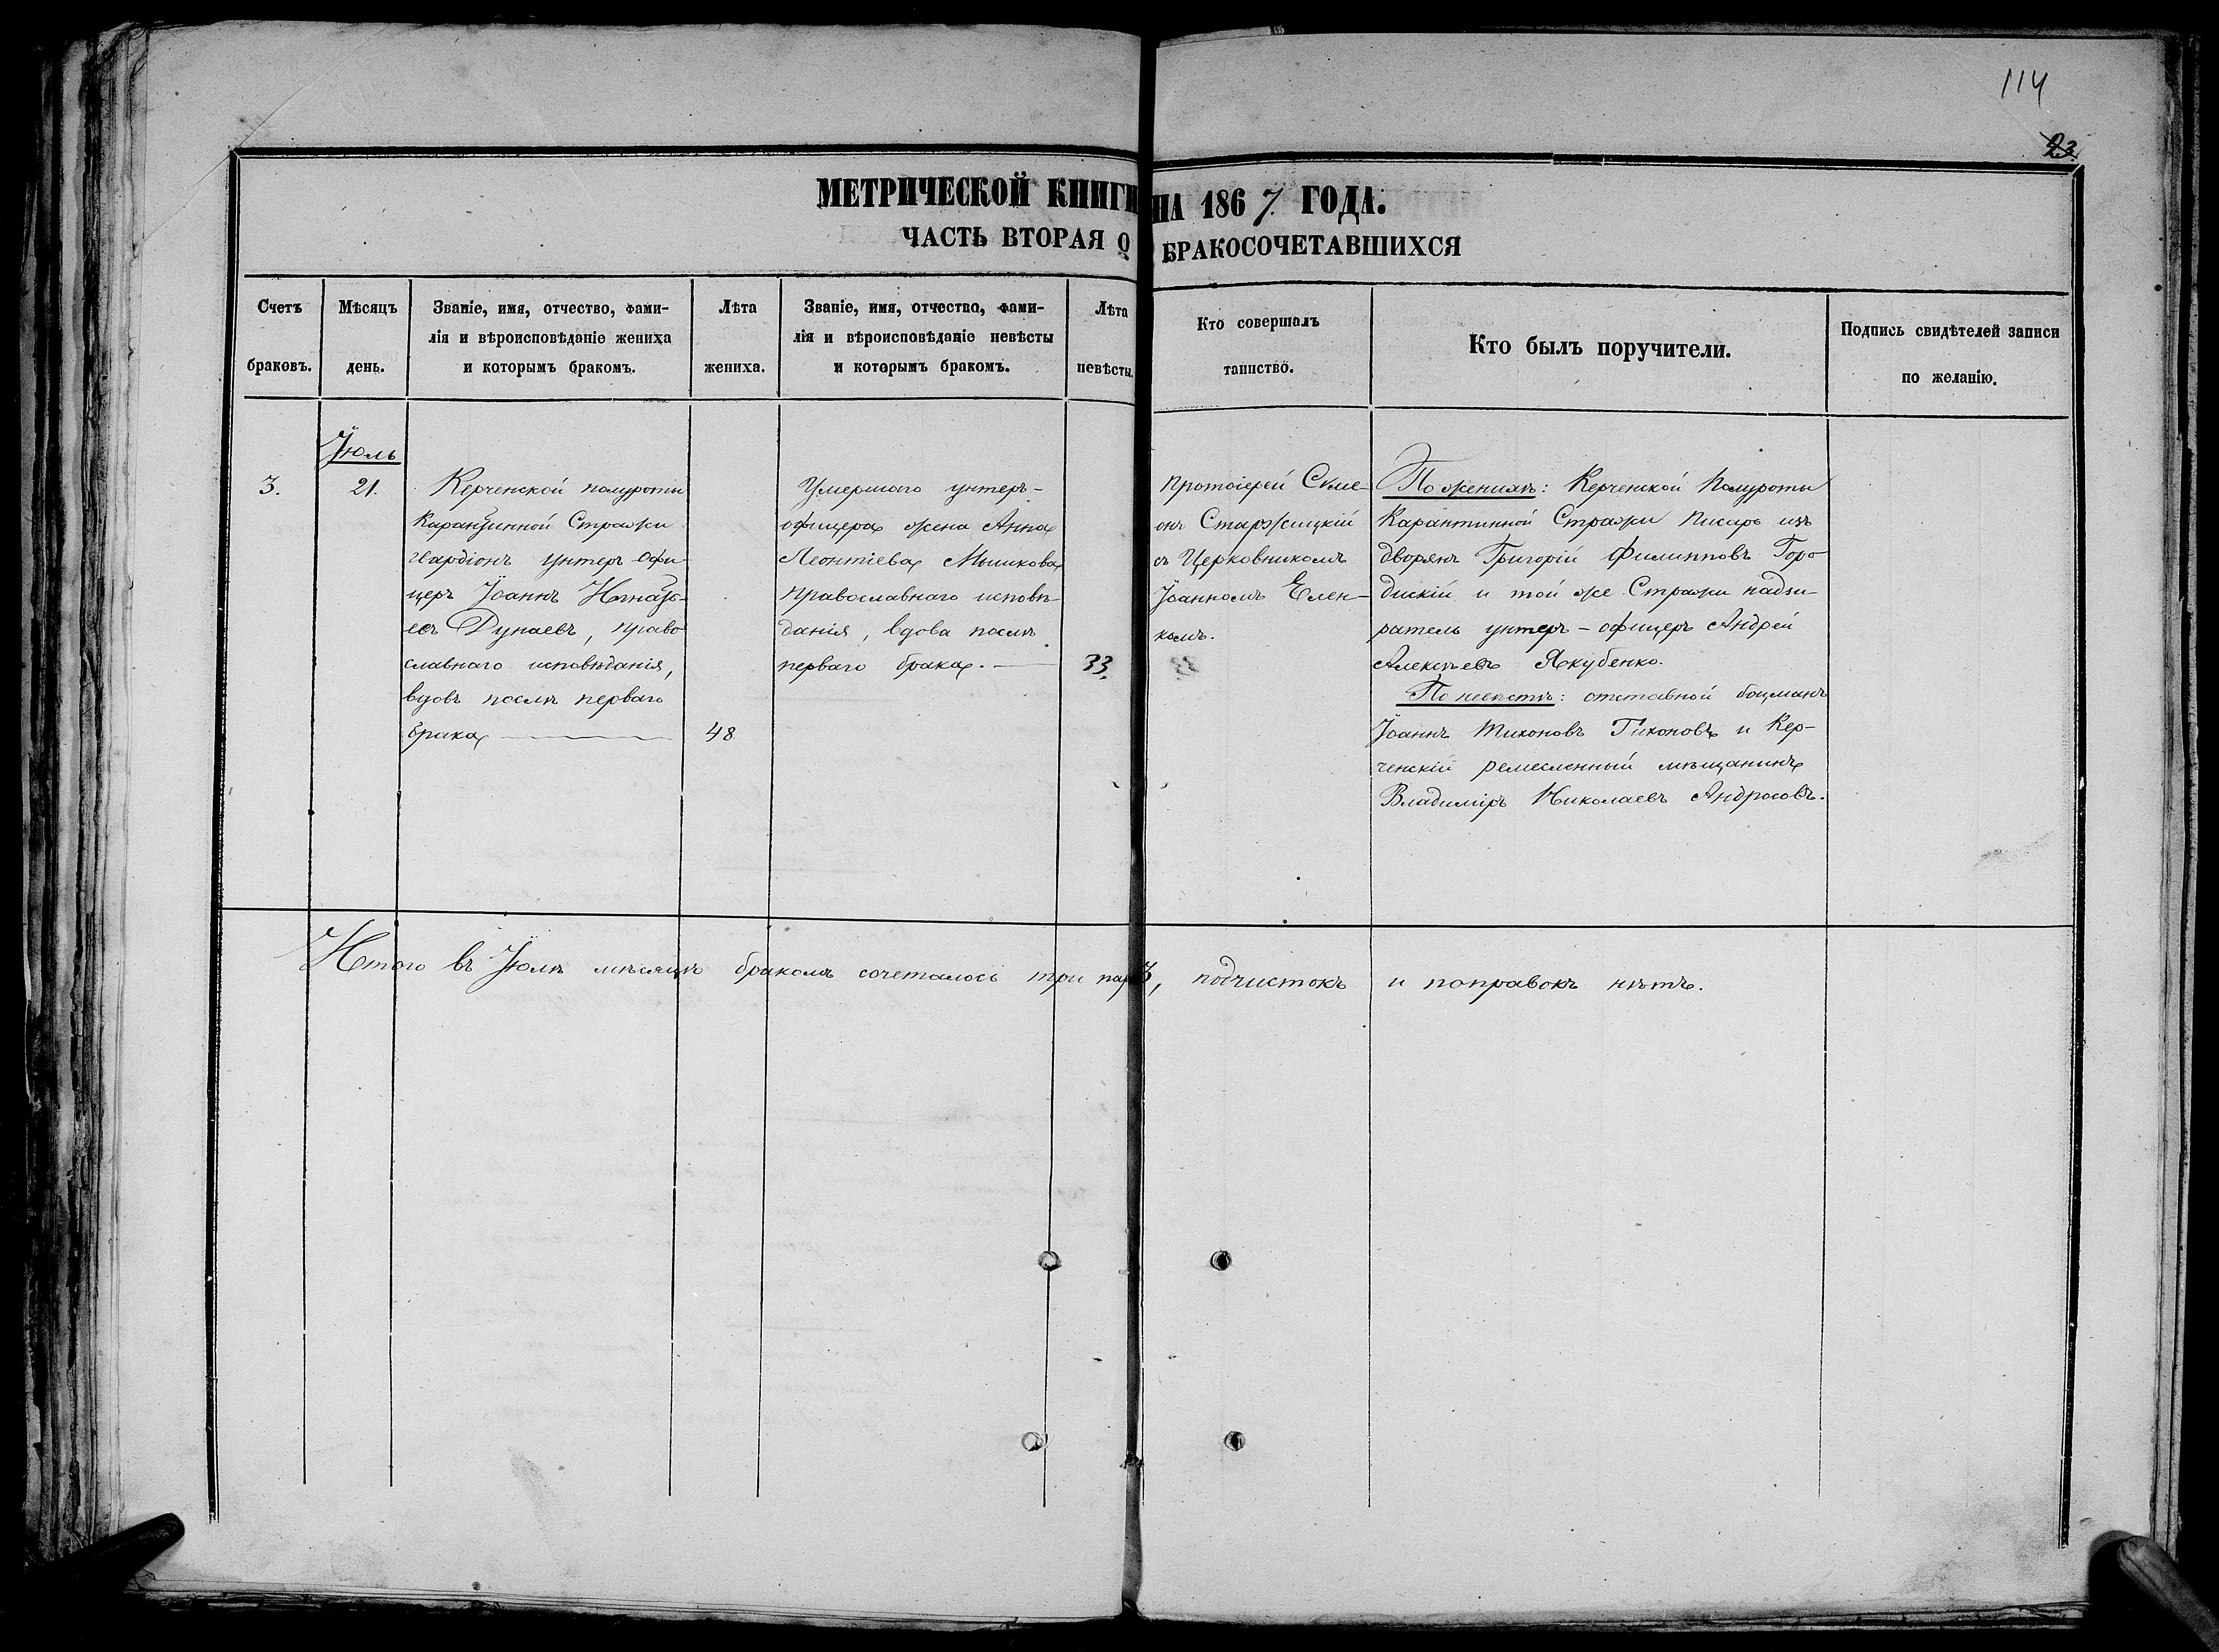 114
23.
МЕТРИЧЕСКОЙ КНИГИ НА 1867 ГОДА.
ЧАСТЬ ВТОРАЯ О БРАКОСОЧЕТАВШИХСЯ
Счетъ
браковъ.
Мѣсяцъ
день.
Званіе, имя, отчество, фами-
лія и вѣроисповѣданіе жениха
и которымъ бракомъ.
Лѣта
жениха.
Званіе, имя, отчество, фами-
лія и вѣроисповѣданіе невѣсты
и которымъ бракомъ.
Лѣта
невѣсты.
Кто совершалъ
таинство.
Кто былъ поручители.
Подпись свидѣтелей записи
по желанію.
3.
Іюль
21.
Керченской полуроты
Карантинной Стражи
Гвардіонъ унтеръ-офи-
церъ Іоаннъ Игнать-
евъ Дунаевъ, право
славнаго исповѣданія,
вдовъ послѣ перваго
брака
48
Умершаго унтеръ-
офицера жена Анна
Леонтіева Мышкова
Православнаго исповѣ-
данія, вдова послѣ
перваго брака.
33.
Протоіерей Сѵме-
онъ Старжицкій
съ Церковникомъ
Іоанномъ Елен-
комъ.
По женихѣ: Керченской Полуроты
Карантинной Стражи Писарь изъ
дворянъ Григорій Филипповъ Горо
дискій и той же Стражи надзи-
ратель унтеръ-офицеръ Андрей
Алексѣевъ Якубенко.
По невѣстѣ: отставной боцманъ
Іоаннъ Тихоновъ Тихоновъ и Кер-
ченскій ремесленный мѣщанинъ
Владиміръ Николаевъ Андросовъ.
Итого въ Іюлѣ мѣсяцѣ бракомъ сочеталось три пар 3, подчистокъ и поправокъ нѣтъ.